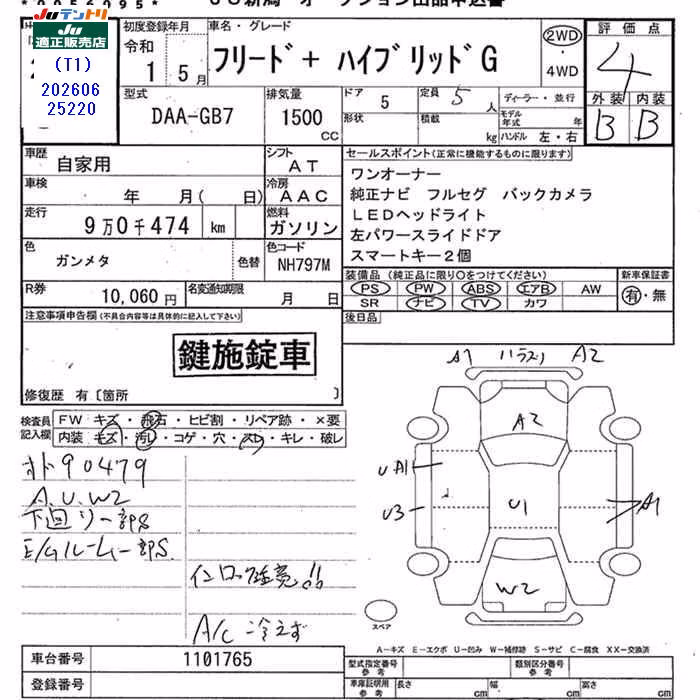 *0056095*
JU新潟 オークション出品申込書
Juテントリ
Ju適正販売店
(T1)
202606
25220
初度登録年月
令和
1 5月
車名・グレード
フリード+ ハイブリッドG
2WD
・
4WD
評価点
4
外装 内装
B B
型式
DAA-GB7
排気量
1500
CC
ドア 5
形状
定員 5人
積載 kg
ディーラー・並行
モデル年式 年
ハンドル 左・右
車歴
自家用
シフト
AT
車検
年 月( 日)
冷房
AAC
走行
9万0千474 km
燃料
ガソリン
色
ガンメタ
色替
色コード
NH797M
R券
10,060円
名変通知期限
月 日
セールスポイント(正常に機能するものに限ります)
ワンオーナー
純正ナビ フルセグ バックカメラ
LEDヘッドライト
左パワースライドドア
スマートキー2個
装備品(純正品に限り○をつけてください)
PS PW ABS エアB AW
SR ナビ TV カワ
新車保証書
有・無
後日品
注意事項申告欄(不具合内容等は具体的に記入して下さい)
鍵施錠車
修復歴 有〔箇所 〕
検査員記入欄
FW キズ・飛石・ヒビ割・リペア跡・×要
内装 キズ・汚れ・コゲ・穴・スレ・キレ・破レ
オド90479
A.U.W2
下回りサビ部S
E/Gルーム部S
A/C冷えず
A1 A2
A2
UA1
U3
U1
A1
W2
スペア
A-キズ E-エクボ U-凹み W-補修跡 S-サビ C-腐食 XX-交換済
車台番号
1101765
登録番号
型式指定番号
参考
類別区分番号
参考
車庫証明用
参考
長さ cm
幅 cm
高さ cm